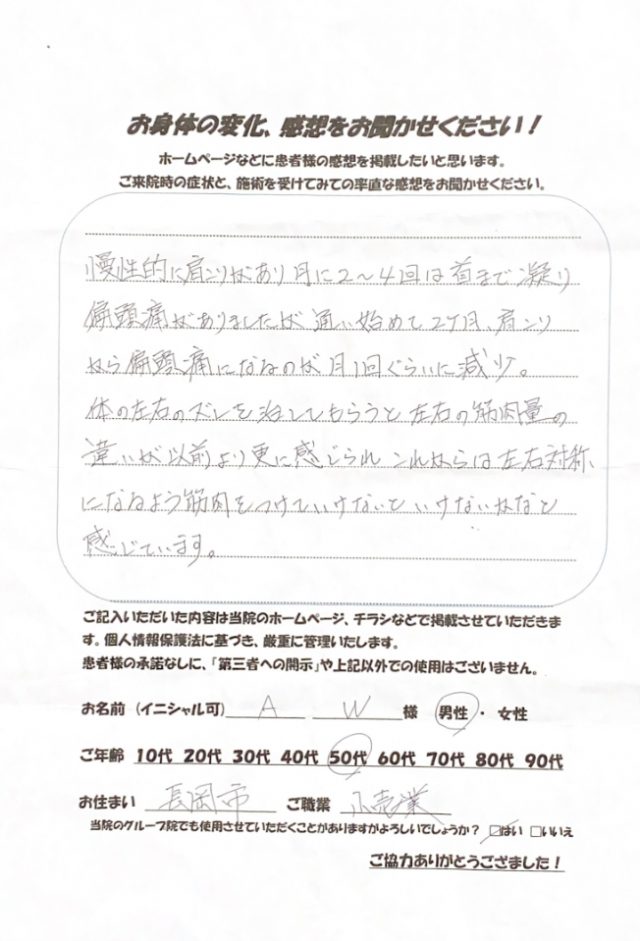 お身体の変化、感想をお聞かせください！
ホームページなどに患者様の感想を掲載したいと思います。
ご来院時の症状と、施術を受けてみての率直な感想をお聞かせください。
慢性的に肩こりがあり月に2〜4回は首まで凝り
偏頭痛がありましたが通い始めて2ケ月、肩こり
から偏頭痛になるのが月1回ぐらいに減少。
体の左右のズレを治してもらうと左右の筋肉量の
違いが以前より更に感じられこれからは左右対称
になるよう筋肉をつけていけないといけないかなと
感じています。
ご記入いただいた内容は当院のホームページ、チラシなどで掲載させていただきま
す。個人情報保護法に基づき、厳重に管理いたします。
患者様の承諾なしに、「第三者への開示」や上記以外での使用はございません。
お名前（イニシャル可） A W 様 男性・女性
ご年齢 10代 20代 30代 40代 50代 60代 70代 80代 90代
お住まい 長岡市 ご職業 小売業
当院のグループ院でも使用させていただくことがありますがよろしいでしょうか？ ☑はい □いいえ
ご協力ありがとうござました！